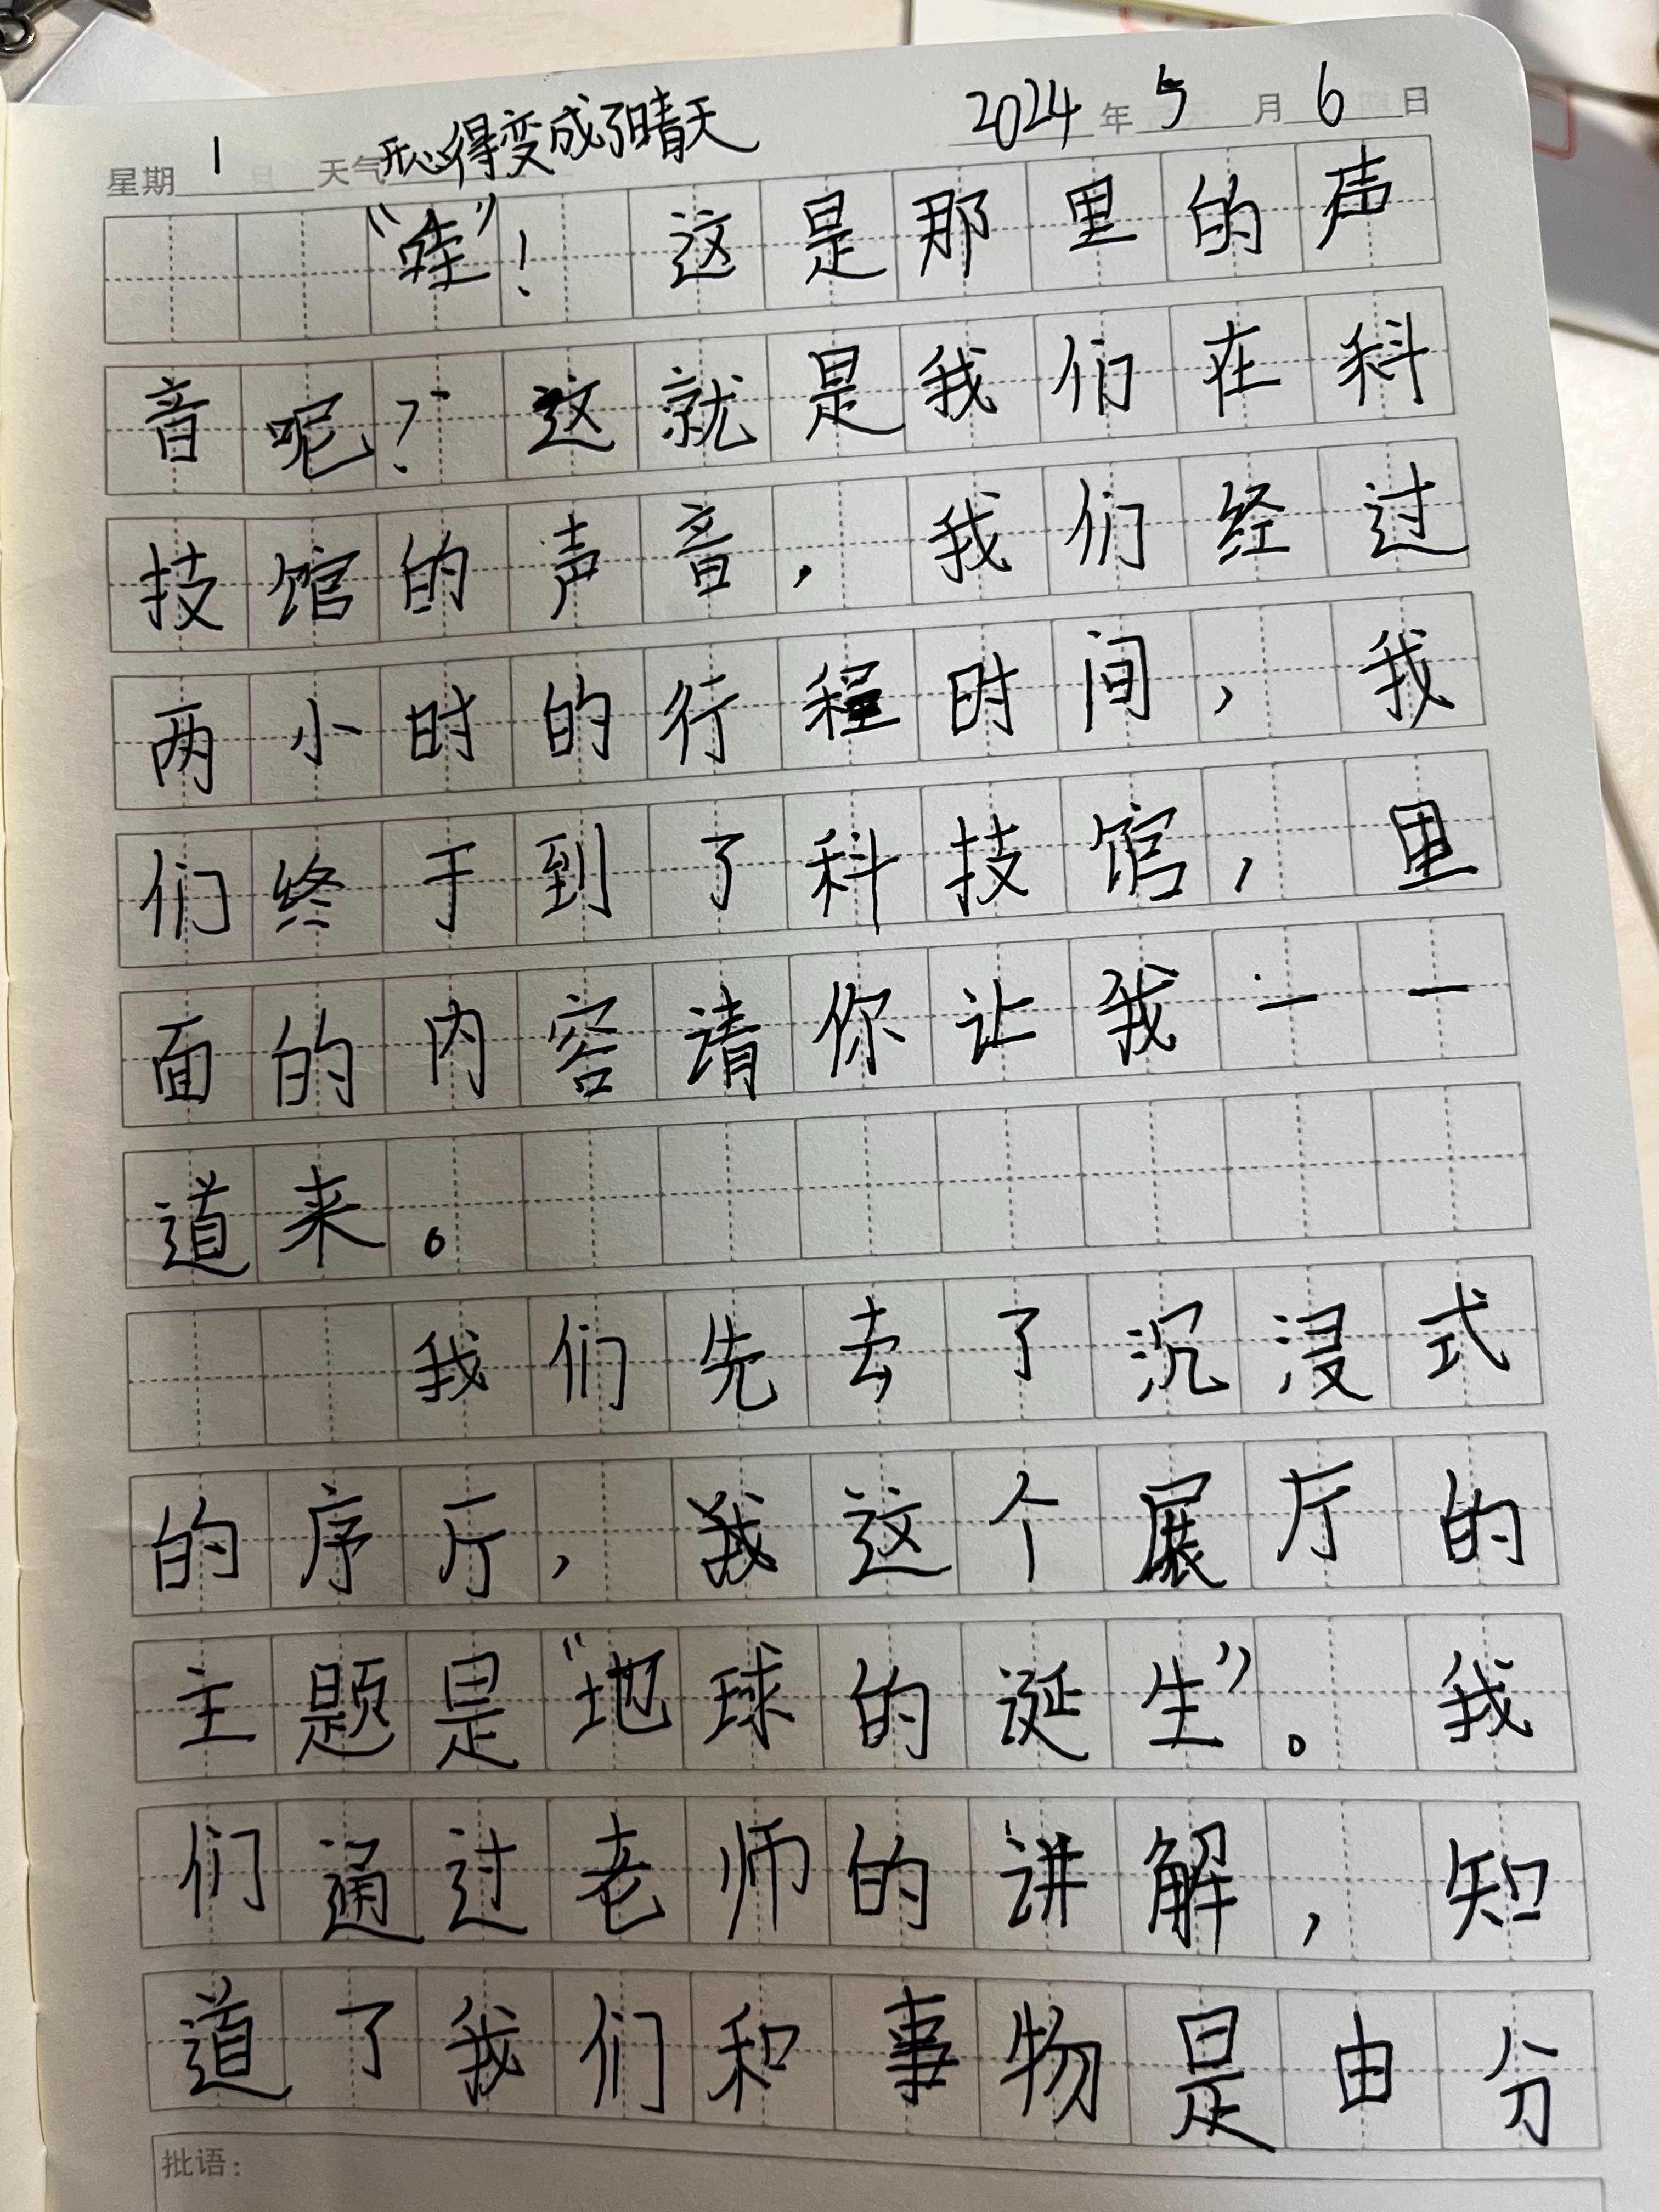 星期 1 天气 开心得变成了晴天 2024 年 5 月 6 日
“哇”！ 这是那里的声
音呢？这就是我们在科
技馆的声音，我们经过
两小时的行程时间，我
们终于到了科技馆，里
面的内容请你让我一一
道来。
我们先去了沉浸式
的序厅，我这个展厅的
主题是“地球的诞生”。我
们通过老师的讲解，知
道了我们和事物是由分
批语：